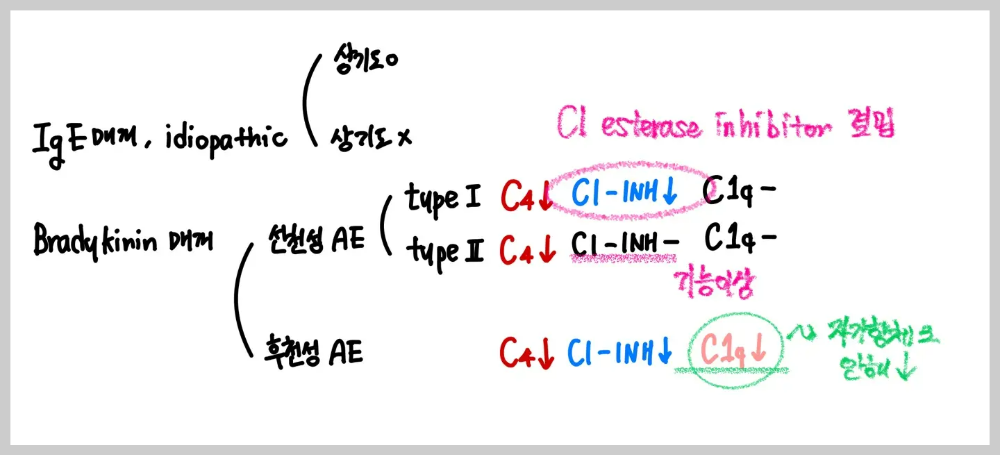 상기도o
IgE매개, idiopathic
상기도x
C1 esterase inhibitor 결핍
type I C4↓ C1-INH↓ C1q-
Bradykinin 매개 선천성 AE
type II C4↓ C1-INH- C1q-
기능이상
후천성 AE C4↓ C1-INH↓ C1q↓
~> 자가항체로
인해↓